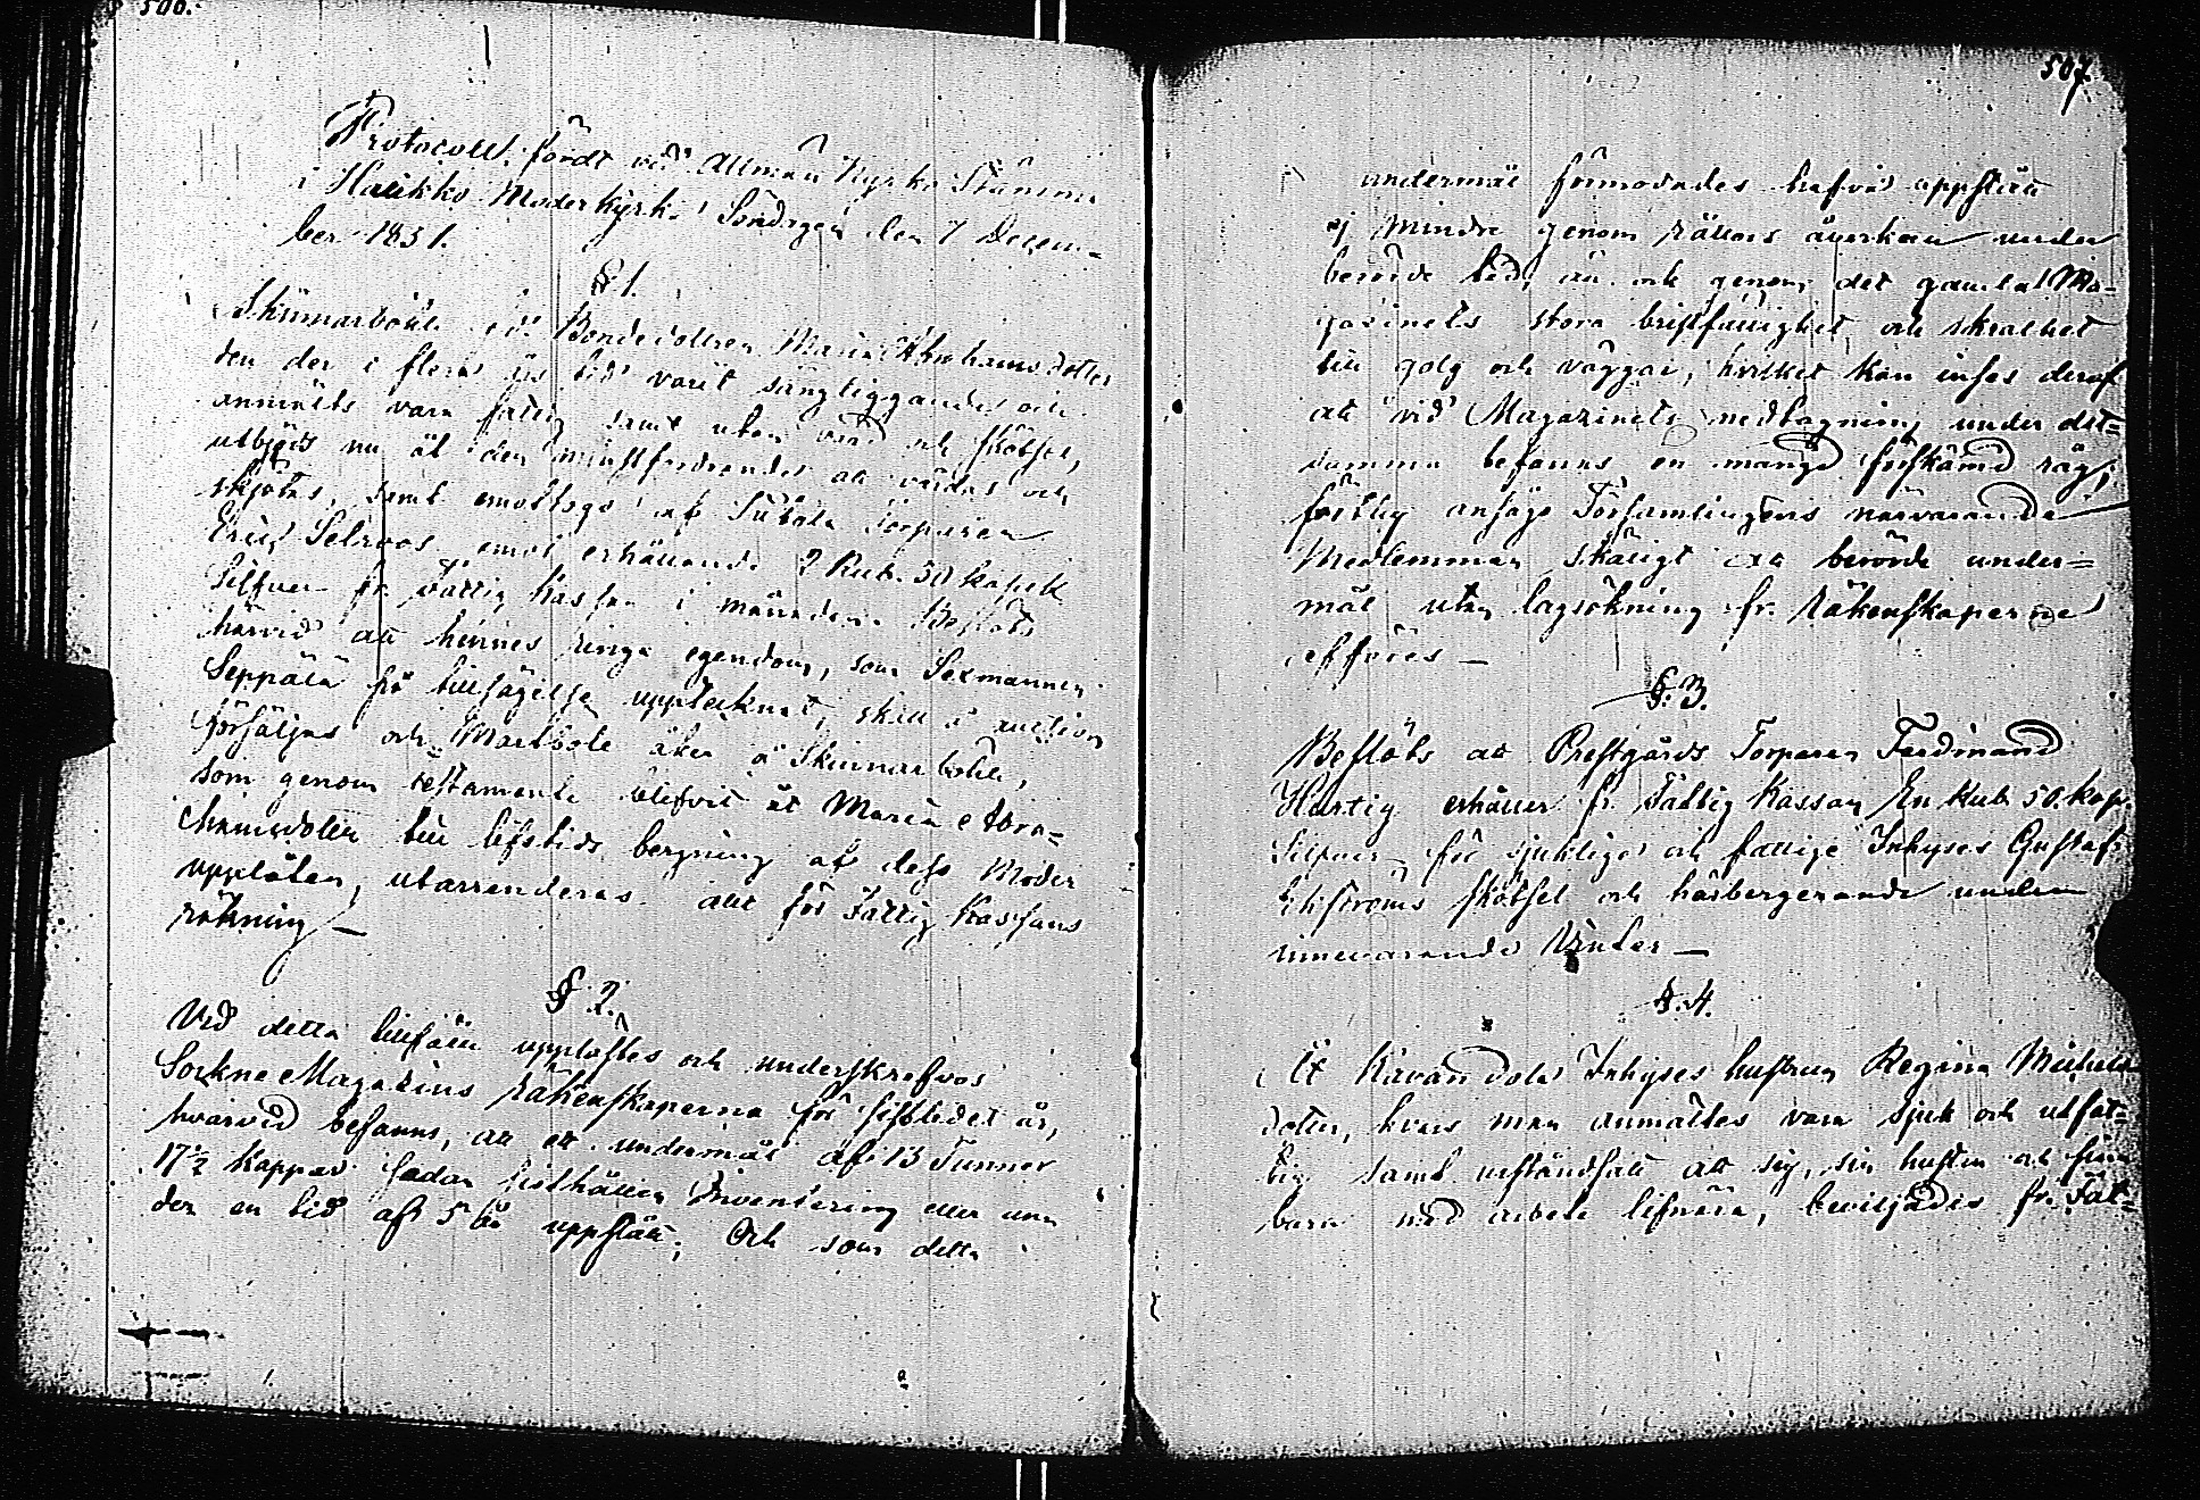 506.
Protocoll, fördt vid Allmän Kyrko Stämma
i Halikko Moderkyrka Söndagen den 7 Decem=
ber 1851.
§ 1.
Skinnarböle Bondedottren Maria Abrahamsdotter
den der i flera års tid varit sängliggandes och
anmälts vara fattig samt utan vård och skötsel,
utbjöds nu åt den minstfordrande att vårdas och
skjötas, samt emottogs af Torparen
Eric Selroos emot erhållande 2 Rub. 50 kopek
Silfver fr. Fattig Kassan i månaden. Beslöts
härvid att hennes ringa egendom, som Sexmannen
Seppälä på tillsägelse upptecknat, skall å auction
försäljas och åker å Skinnarböle,
som genom testamente blifvit åt Maria Abra=
hamsdotter till lifstids bergning af dess Moder
upplåten, utarrenderas allt för Fattig Kassans
räkning —
§ 2.
Vid detta tillfälle upplästes och underskrefvos
Sockne Magazins Räkenskaperna för sistledet år,
hvarvid befanns, att ett undermål af 13 Tunnor
17½ kappar sedan sisthållen Inventering eller un=
der en tid af 5 år uppstått; Och som detta
507.
undermål förmodades hafva uppstått
ej mindre genom råttors åverkan under
berörde tid, än ock genom det gamla Ma=
gazinets stora bristfällighet och skralhet
till golf och väggar, hvilket kan inses deraf
att vid Magazinets nedtagning under det=
samma befanns en mängd förskämd råg;
förthy ansågo Församlingens närvarande
Medlemmar skäligt att berörde under=
mål utan lagsökning fr. Räkenskaperne
afföres —
§. 3.
Beslöts att Prestgårds Torparen Ferdinand
Hartig erhåller fr. Fattig Kassan En Rub. 50. kop.
Silfver för sjuklige och fattige Inhyses Gustaf
Ekströms skötsel och härbergerande under
innevarande Vinter —
§. 4.
Åt Inhyses hustrun Regina Michels
dotter, hvars man anmältes vara sjuk och utfat=
tig samt urståndsatt att sig, sin hustru och sina
barn med arbete lifnära, beviljades fr. Fat=